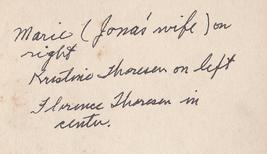 Marie (Jonas' wife) on
right
Kristine Thoresen on left
Florence Thoresen in
center.